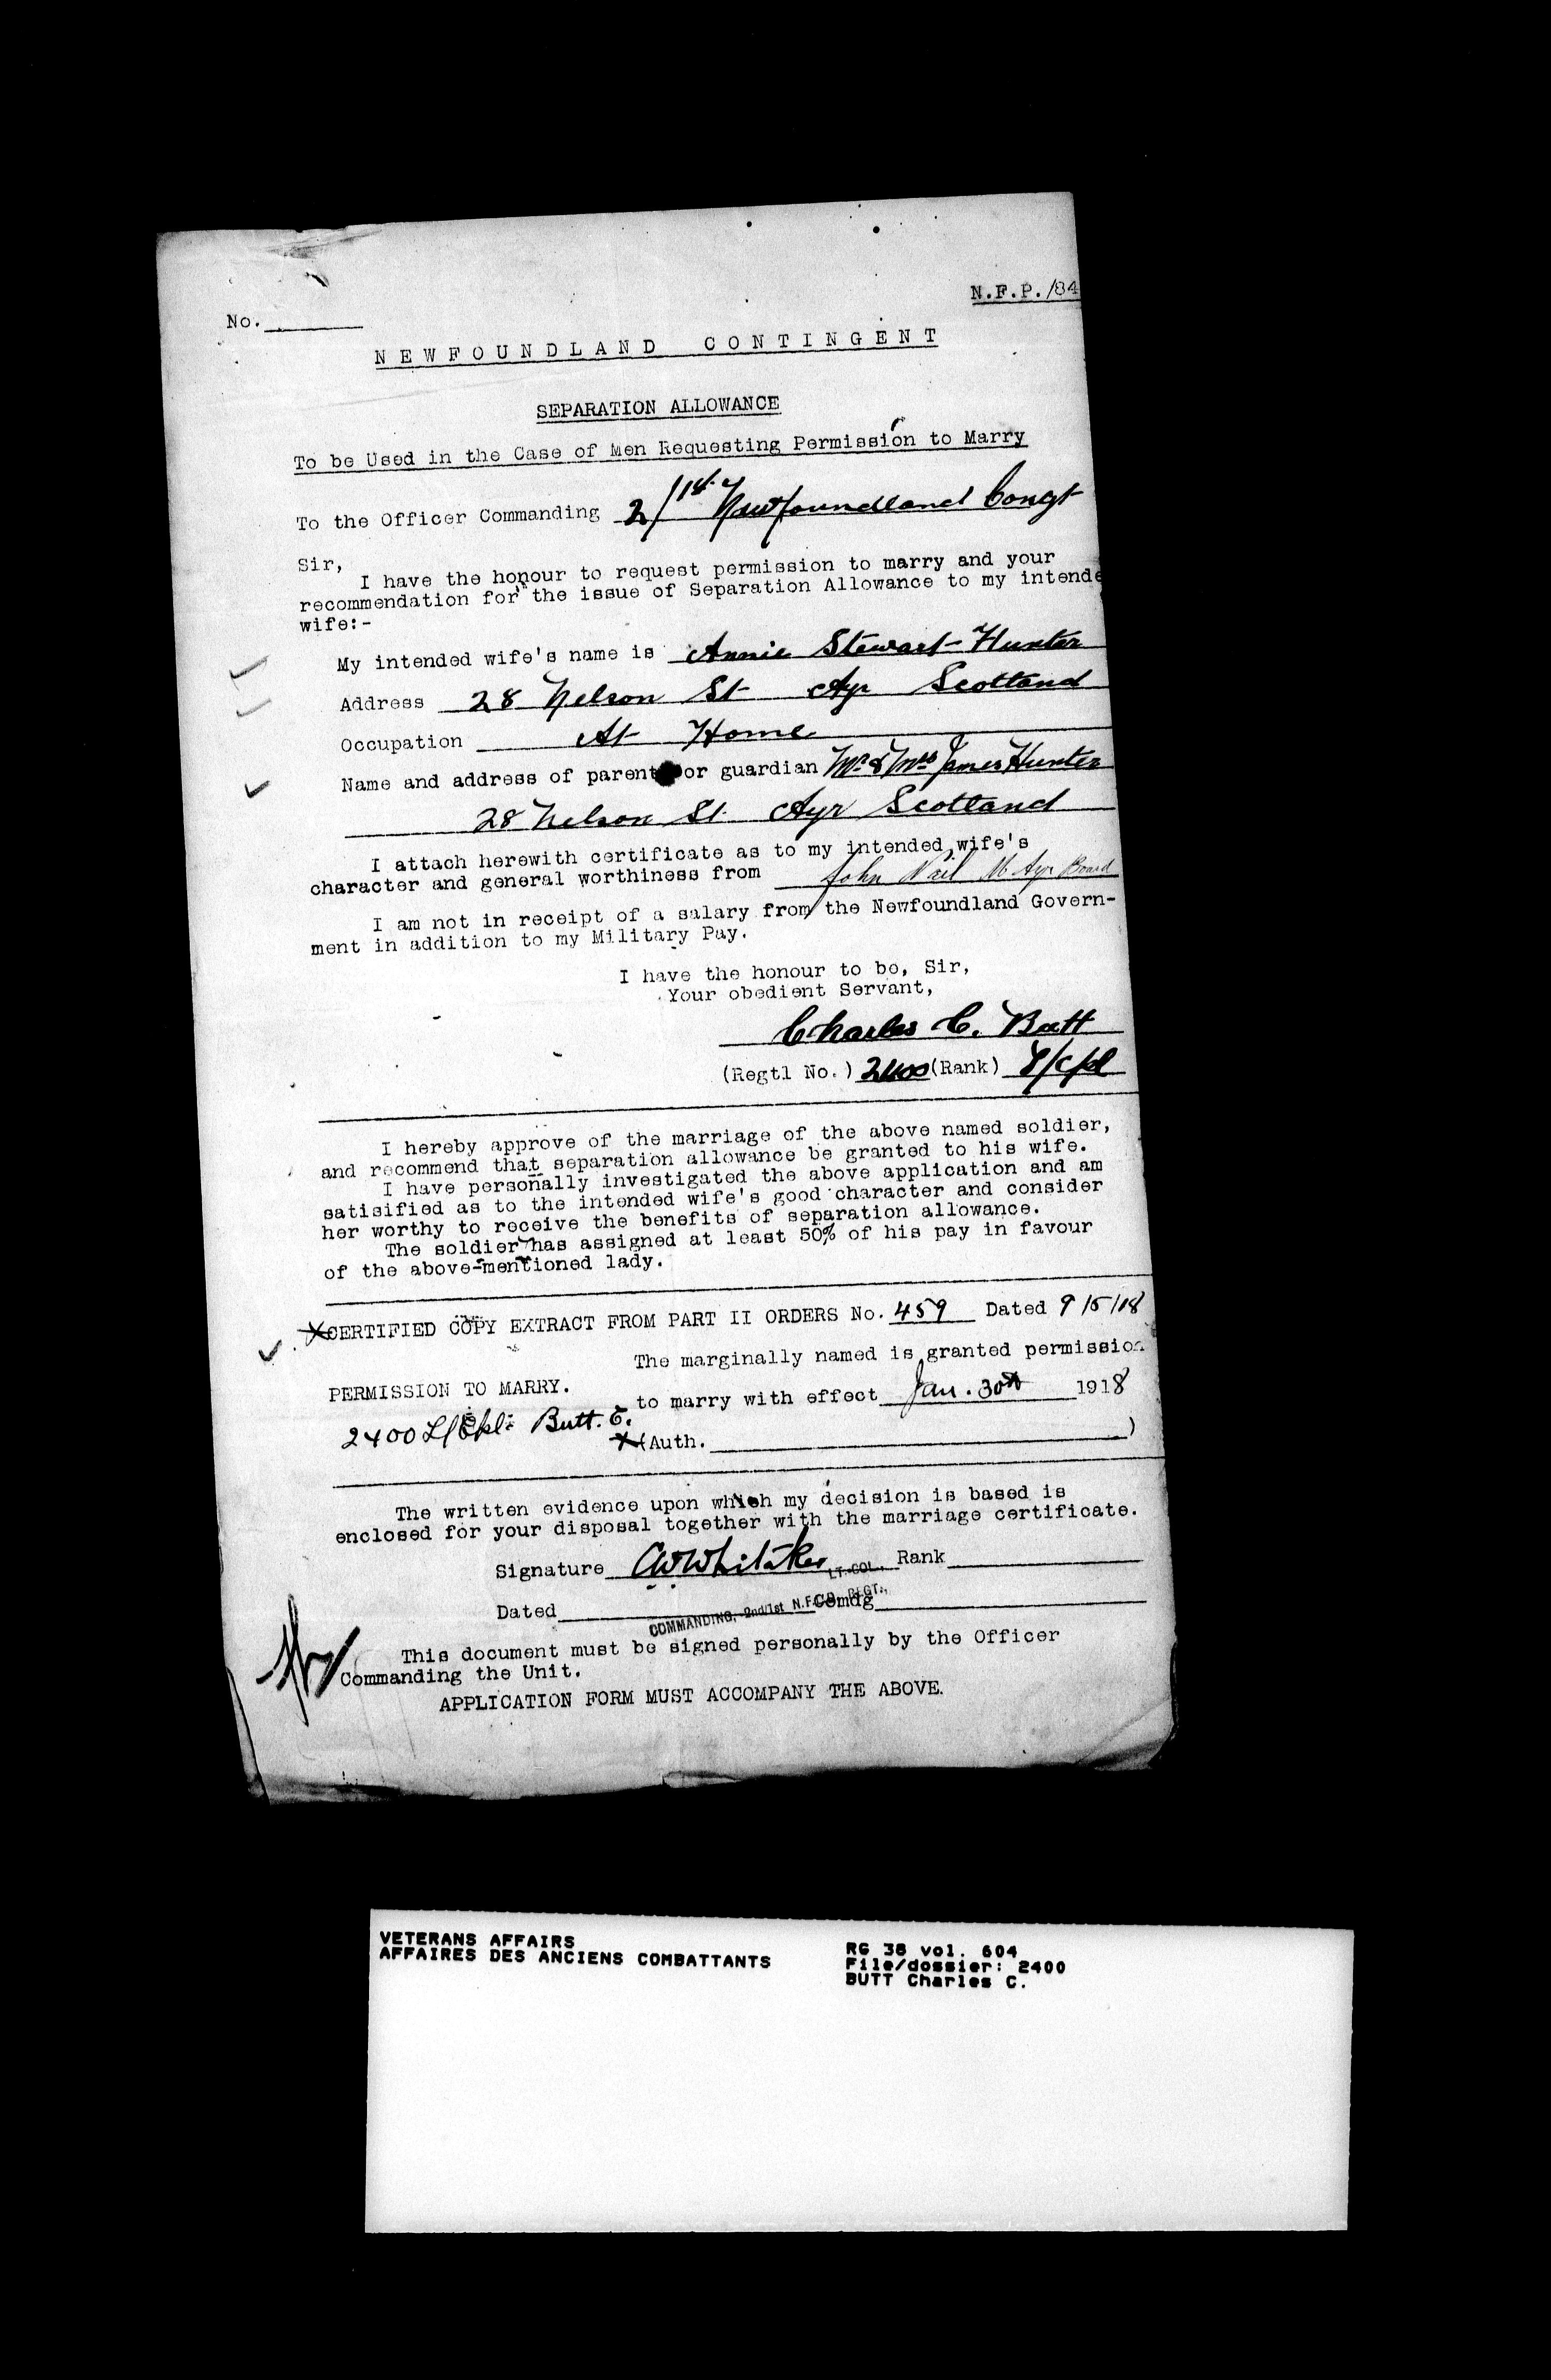 N.F.P./84
No.
NEWFOUNDLAND CONTINGENT
SEPARATION ALLOWANCE
To be Used in the Case of Men Requesting Permission to Marry
To the Officer Commanding 2/1st Newfoundland Congt
Sir,
I have the honour to request permission to marry and your
recommendation for the issue of Separation Allowance to my intende
wife:-
My intended wife's name is Annie Stewart Hunter
Address 28 Nelson St Ayr Scotland
Occupation At Home
Name and address of parent or guardian Mr & Mrs James Hunter
28 Nelson St. Ayr Scotland
I attach herewith certificate as to my intended wife's
character and general worthiness from John Ayr
I am not in receipt of a salary from the Newfoundland Govern-
ment in addition to my Military Pay.
I have the honour to be, Sir,
Your obedient Servant,
Charles C. Butt
(Regtl No.) 2400 (Rank) L/Cpl
I hereby approve of the marriage of the above named soldier,
and recommend that separation allowance be granted to his wife.
I have personally investigated the above application and am
satisified as to the intended wife's good character and consider
her worthy to receive the benefits of separation allowance.
The soldier has assigned at least 50% of his pay in favour
of the above-mentioned lady.
CERTIFIED COPY EXTRACT FROM PART II ORDERS No. 459 Dated 9/5/18
The marginally named is granted permission
PERMISSION TO MARRY.
to marry with effect Jan. 30th 1918
2400 L/Cpl: Butt. C.
(Auth. )
The written evidence upon which my decision is based is
enclosed for your disposal together with the marriage certificate.
Signature CW Whitaker LT.-COL., Rank
Dated Comdg
COMMANDING, 2nd/1st N.F.L.D. REGT.,
This document must be signed personally by the Officer
Commanding the Unit.
APPLICATION FORM MUST ACCOMPANY THE ABOVE.
VETERANS AFFAIRS
AFFAIRES DES ANCIENS COMBATTANTS
RG 38 vol. 604
File/dossier: 2400
BUTT Charles C.